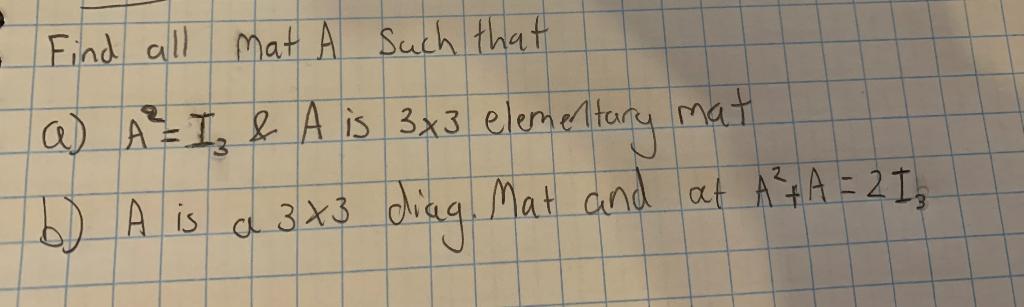 Find all mat A such that
a) A² = I₃ & A is 3x3 elementary mat
b) A is a 3x3 diag. Mat and at A² + A = 2I₃